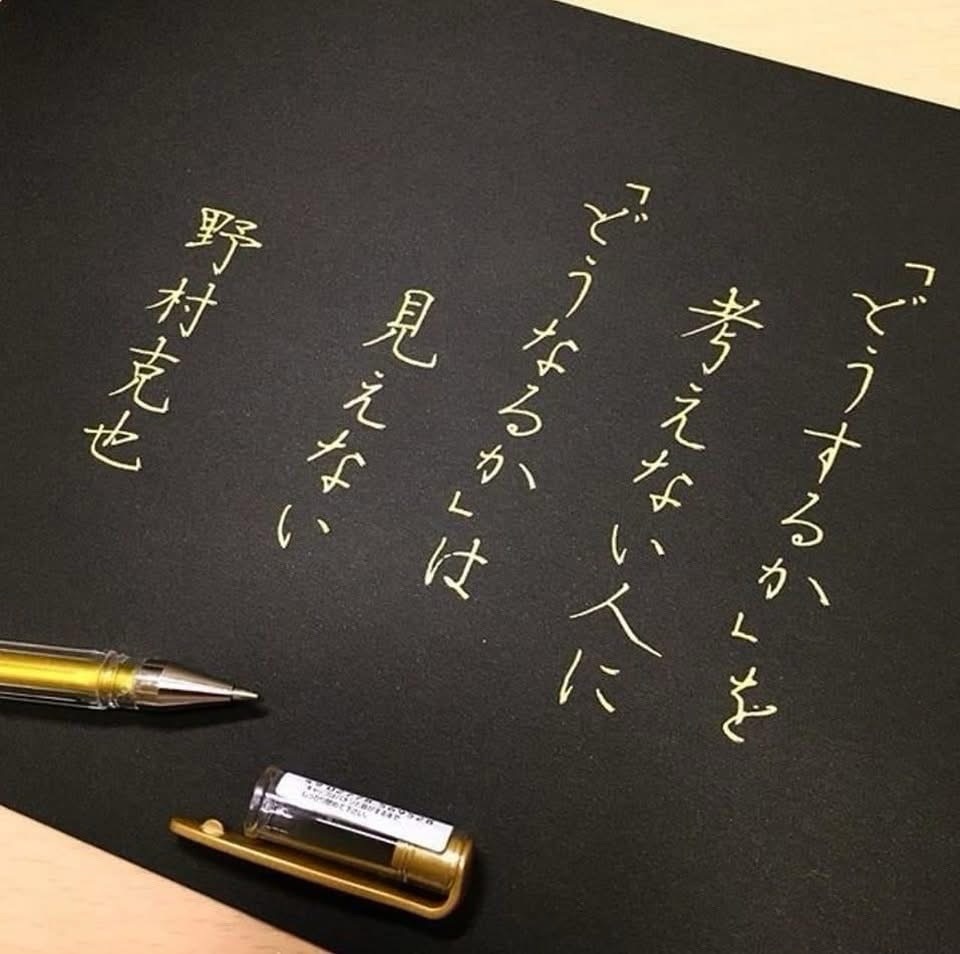 「どうするか」を
考えない人に
「どうなるか」は
見えない
野村克也